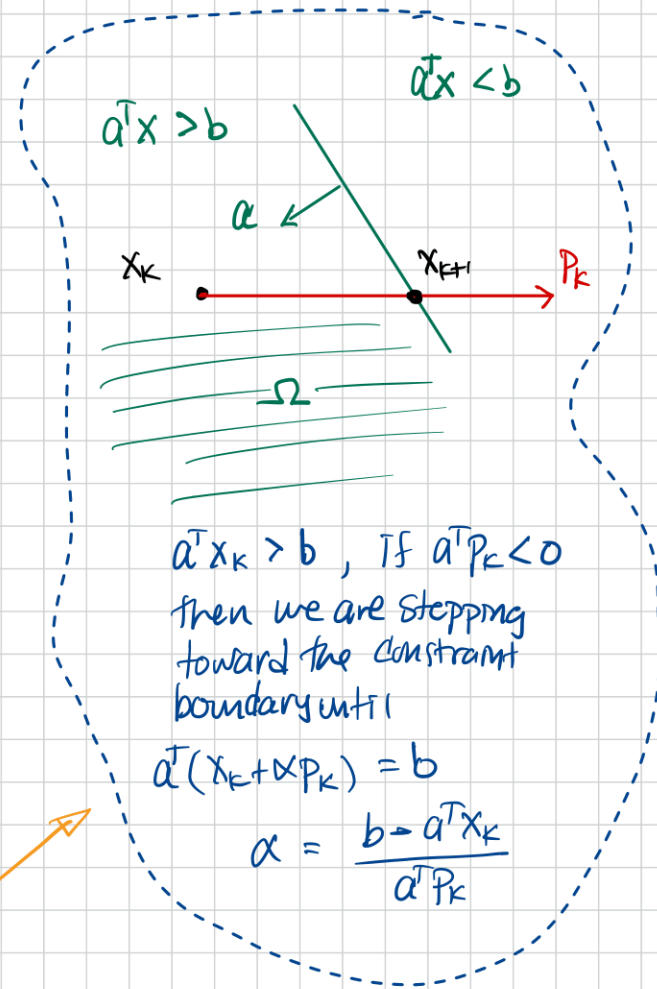 aᵀx < b
aᵀx > b
a
xₖ
xₖ₊₁
pₖ
Ω
aᵀxₖ > b , if aᵀpₖ < 0
then we are stepping
toward the constraint
boundary until
aᵀ(xₖ+αpₖ) = b
α = (b - aᵀxₖ) / (aᵀpₖ)